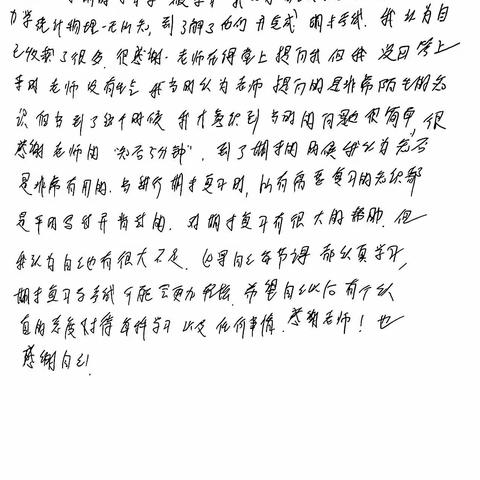 力学统计物理一无所知，到了解了如何并完成期末考试。我认为自
己收获了很多。很感谢老师在课堂上提问我但我没回答上
来时老师没有生气，我当时认为老师提问的是非常陌生的知
识但当到了这个时候我才意识到当时的问题很简单，很
感谢老师的"充电5分钟"，到了期末的时候我认为充电
是非常有用的。当进行期末复习时，所有需要复习的知识都
是平时写过并背过的。对期末复习有很大的帮助。但
我认为自己也有很大不足。如果自己每节课都认真学习，
期末复习与考试可能会更加轻松。希望自己以后有个认
真的态度对待每件学习以及任何事情。感谢老师！也
感谢自己！